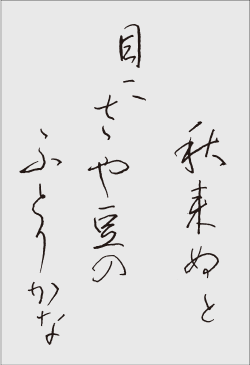 秋来ぬと
目にさや豆の
ふとりかな